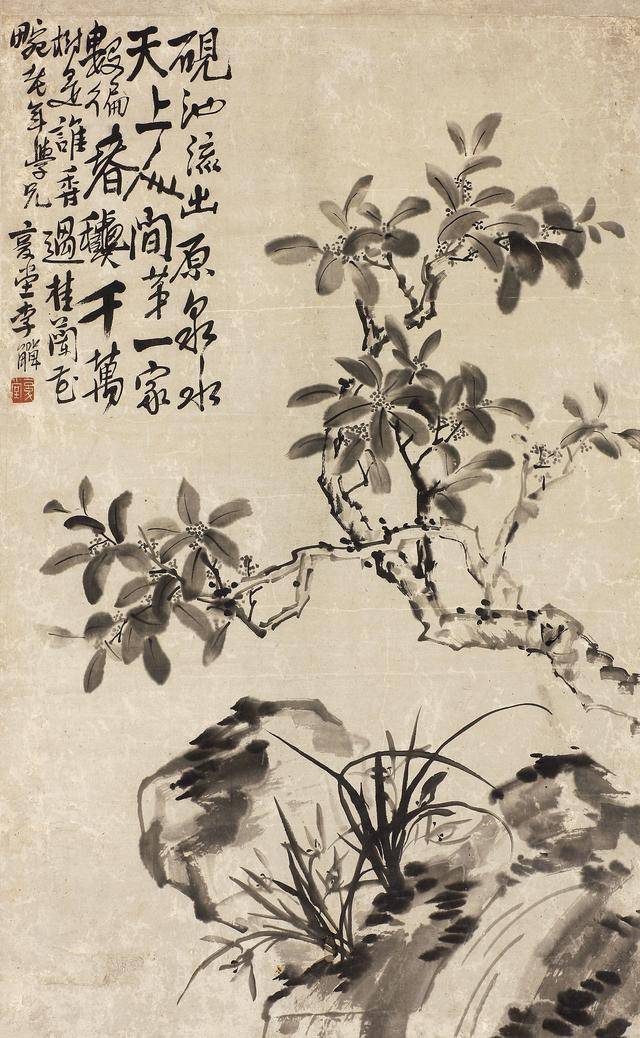 硯池流出原泉水
天上人間第一家
數徧春穠千萬
樹是誰香過桂蘭花
畹老年學兄 复堂李鱓